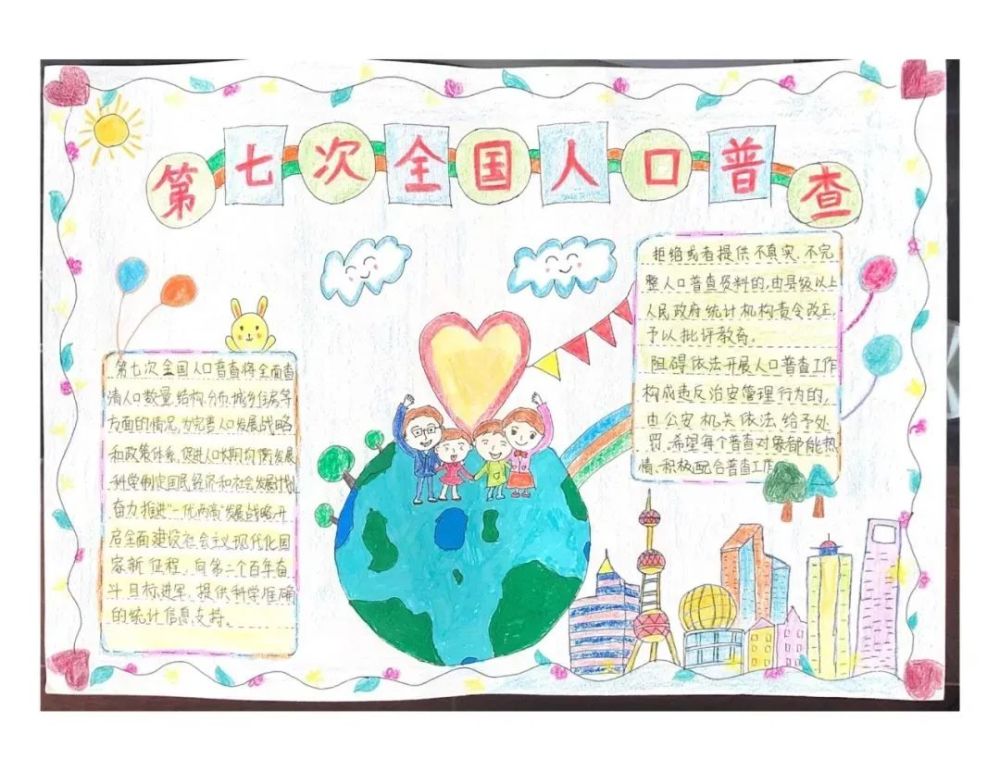 第七次全国人口普查
第七次全国人口普查将全面查
清人口数量、结构、分布、城乡住房等
方面的情况,为完善人口发展战略
和政策体系、促进人口长期均衡发展、
科学制定国民经济和社会发展计划
奋力推进"一优两高"发展战略,开
启全面建设社会主义现代化国
家新征程,向第二个百年奋
斗目标进军,提供科学准确
的统计信息支持。
拒绝或者提供不真实、不完
整人口普查资料的,由县级以上
人民政府统计机构责令改正,
予以批评教育。
阻碍依法开展人口普查工作
构成违反治安管理行为的,
由公安机关依法给予处
罚。希望每个普查对象都能热
情、积极配合普查工作